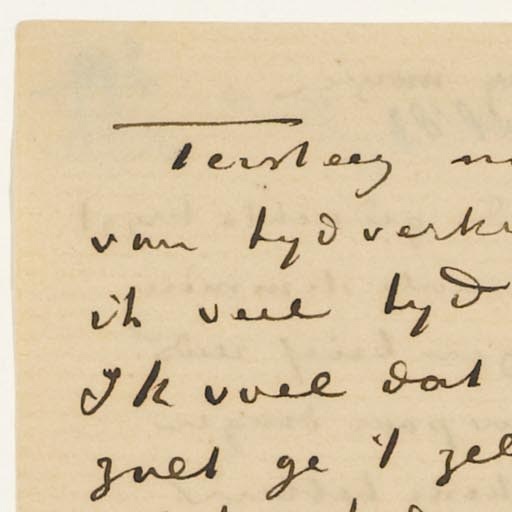 Tersteeg
van tijdverk
ik veel tijd
Ik voel dat
zult ge 't zel